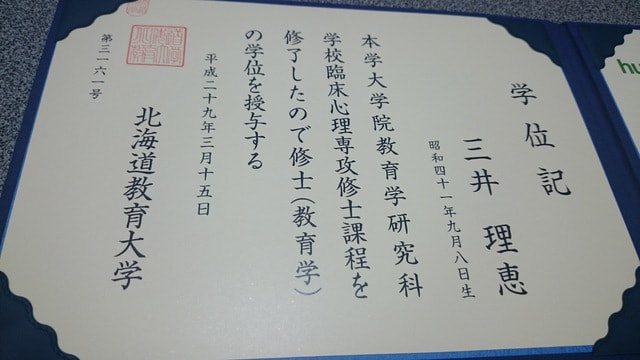 学位記
三井 理恵
昭和四十一年九月八日生
本学大学院教育学研究科
学校臨床心理専攻修士課程を
修了したので修士（教育学）
の学位を授与する
平成二十九年三月十五日
北海道教育大学
第三一六一号
hu